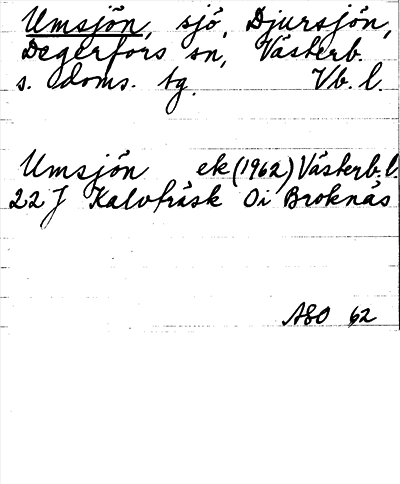 Umsjön, sjö, Djursjön,
Degerfors sn, Västerb.
s. doms. tg. Vb. l.
Umsjön ek (1962) Västerb. l.
22 J Kalvträsk 0i Broknäs
ASO 62